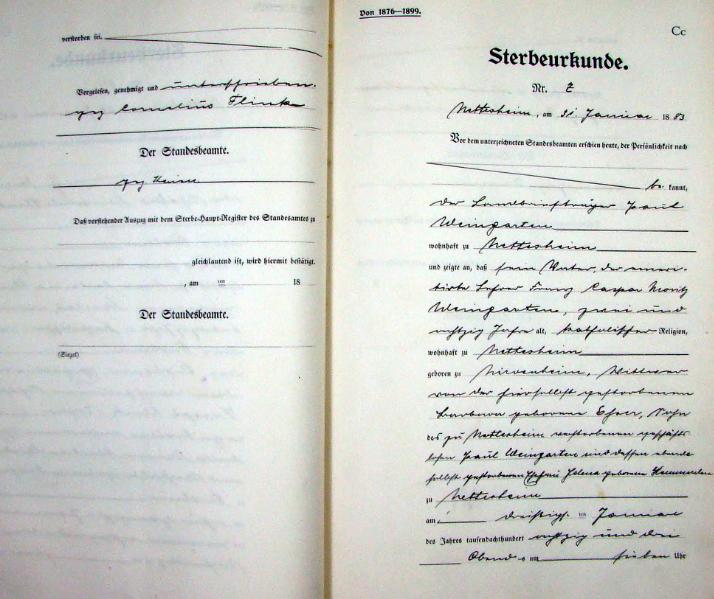 verstorben sei.
Vorgelesen, genehmigt und unterschrieben.
gez Cornelius Flink
Der Standesbeamte.
gez Heim
Daß vorstehender Auszug mit dem Sterbe-Haupt-Register des Standesamtes zu
gleichlautend ist, wird hiermit bestätigt.
, am ten 18
Der Standesbeamte.
(Siegel)
Von 1876—1899.
Cc
Sterbeurkunde.
Nr.
Nettesheim, am 31. Januar 1883
Vor dem unterzeichneten Standesbeamten erschien heute, der Persönlichkeit nach
be kannt,
der Landbriefträger Paul
Weingarten
wohnhaft zu Nettesheim
und zeigte an, daß sein Vater, der emeri-
tirte Lehrer Franz Caspar Moritz
Weingarten, zwei und
achtzig Jahre alt, katholischer Religion,
wohnhaft zu Nettesheim
geboren zu Nievenheim, Wittwer
von der hierselbst gestorbenen
Barbara geborene Esser, Sohn
des zu Nettesheim verstorbenen geschäfts-
losen Paul Weingarten und dessen ebenda-
selbst gestorbenen Ehefrau Helena geborenen
zu Nettesheim
am dreißigsten Januar
des Jahres tausendachthundert achtzig und drei
Abends um sieben Uhr